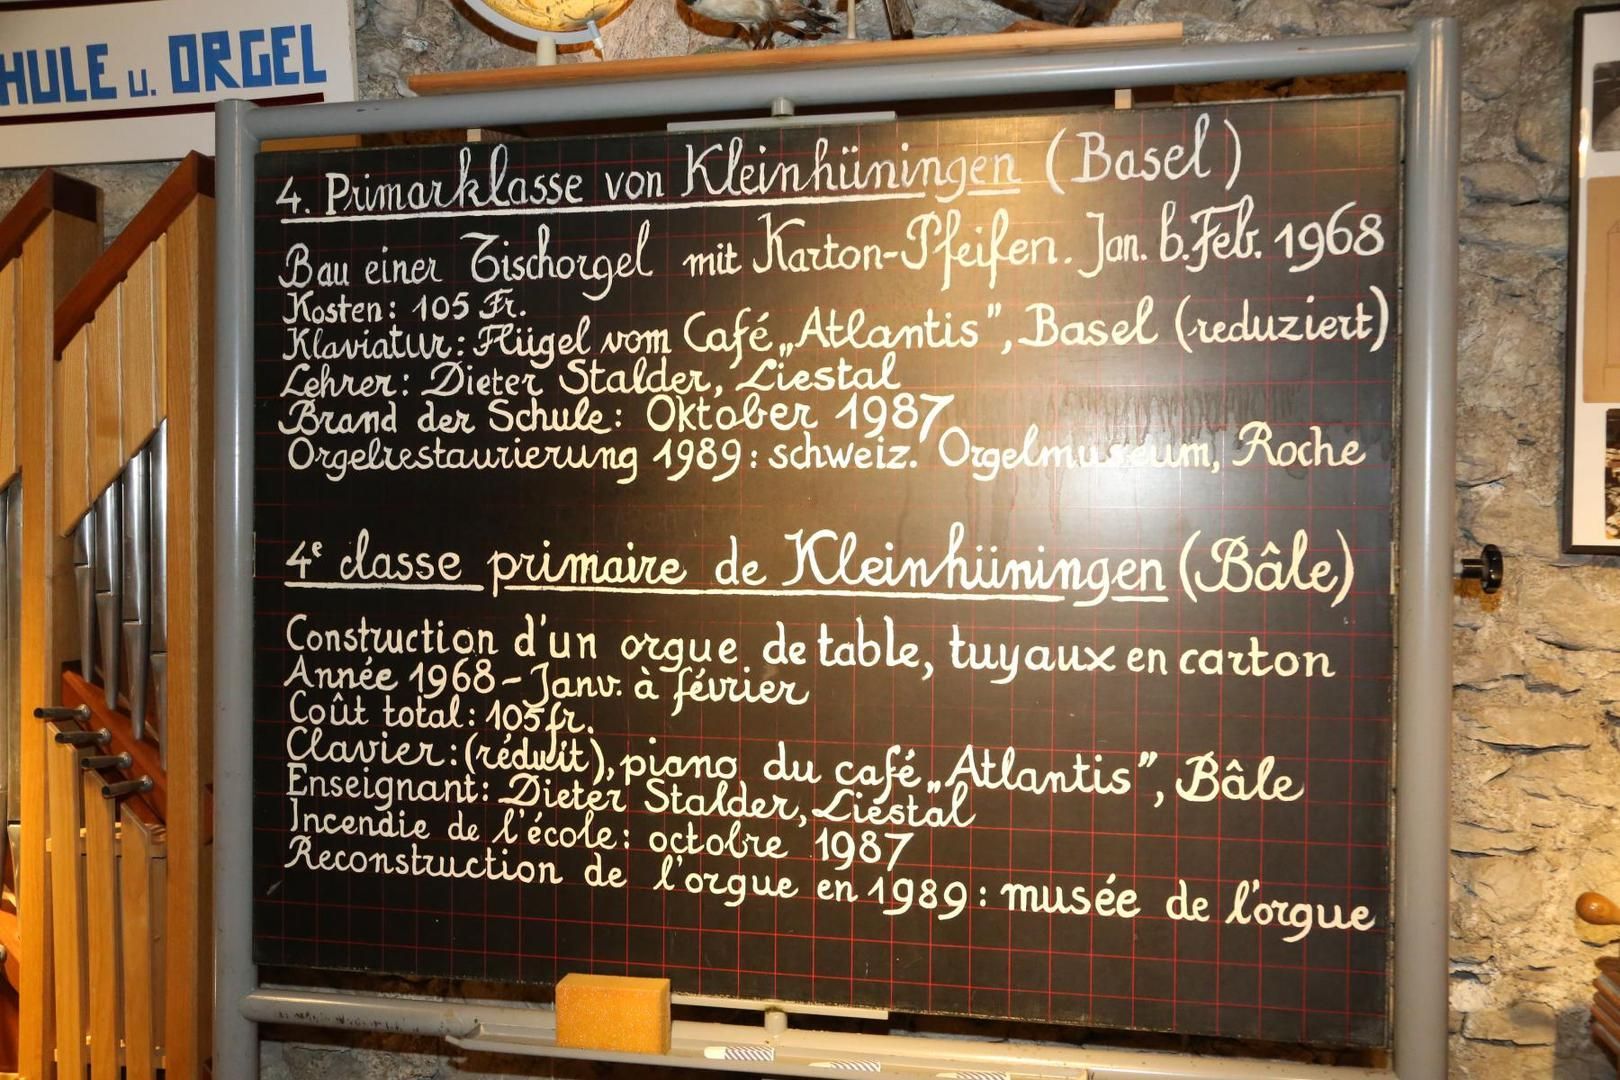 HULE u. ORGEL
4. Primarklasse von Kleinhüningen (Basel)
Bau einer Tischorgel mit Karton-Pfeifen. Jan. b. Feb. 1968
Kosten: 105 Fr.
Klaviatur: Flügel vom Café „Atlantis", Basel (reduziert)
Lehrer: Dieter Stalder, Liestal
Brand der Schule: Oktober 1987
Orgelrestaurierung 1989: schweiz. Orgelmuseum, Roche
4e classe primaire de Kleinhüningen (Bâle)
Construction d'un orgue de table, tuyaux en carton
Année 1968 - Janv. à février
Coût total: 105 fr.
Clavier: (réduit), piano du café „Atlantis", Bâle
Enseignant: Dieter Stalder, Liestal
Incendie de l'école: octobre 1987
Reconstruction de l'orgue en 1989: musée de l'orgue